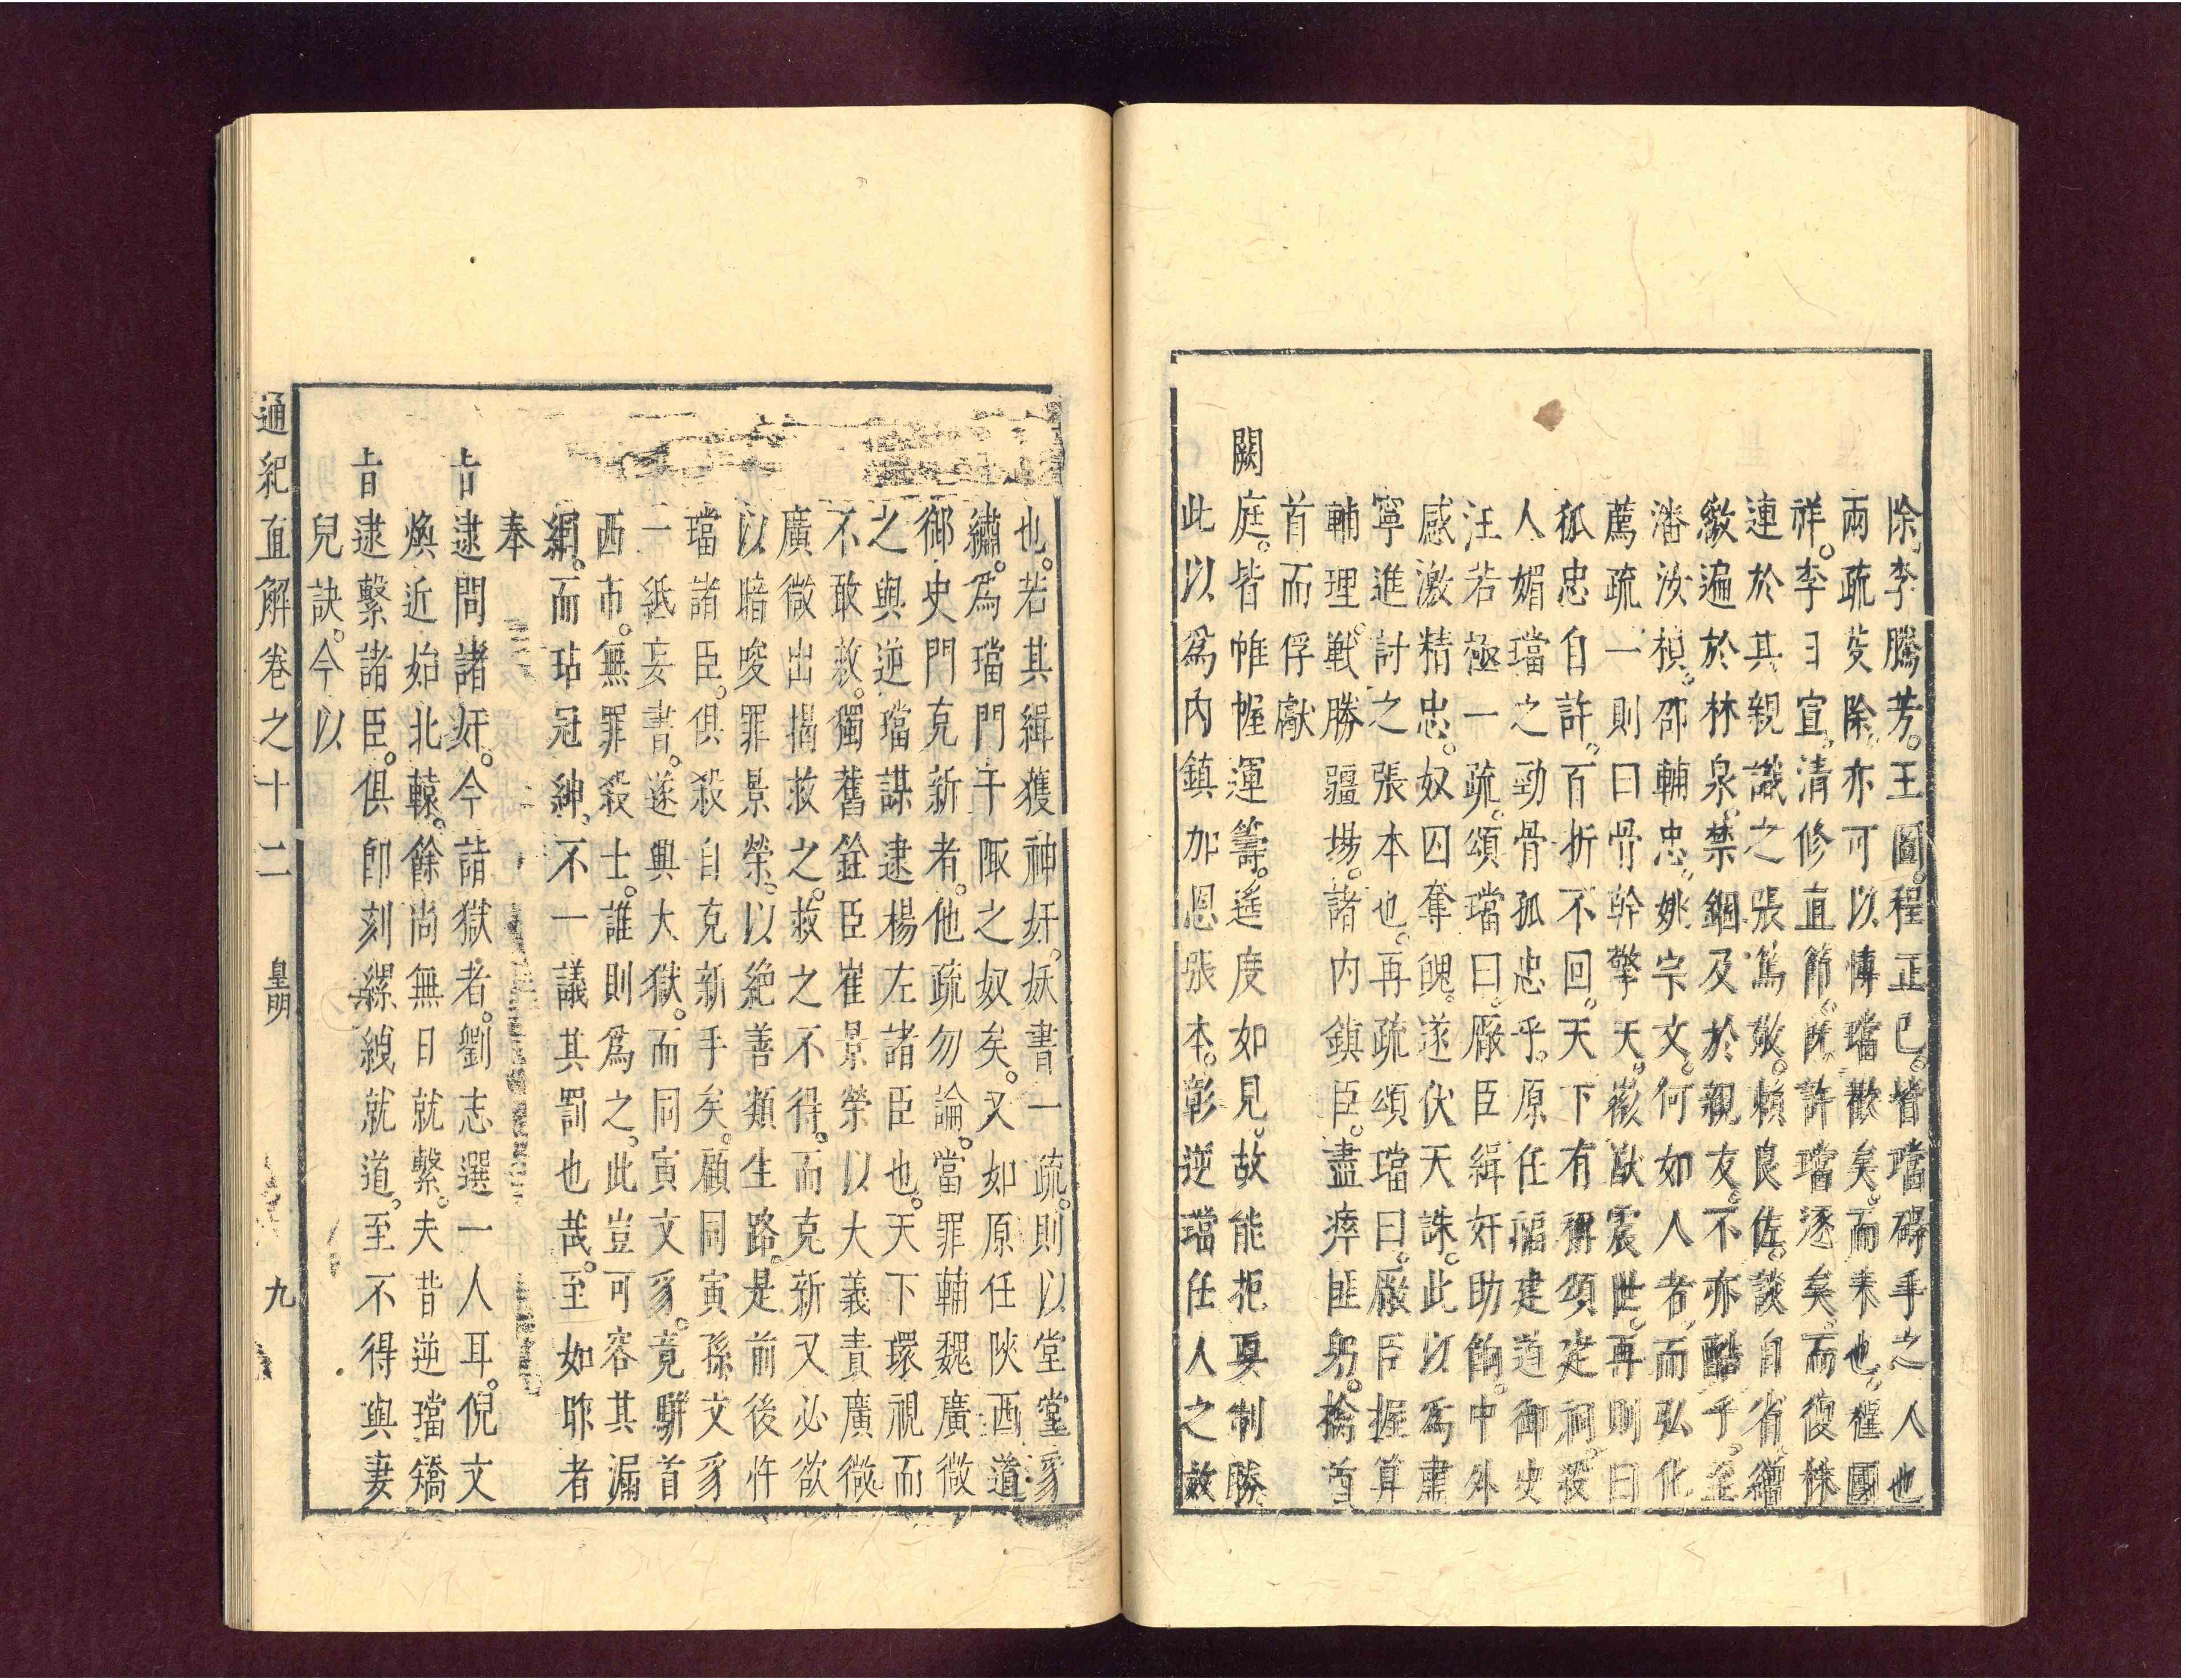 除。李騰芳。王圖。程正已。皆璫碍手之人也
兩疏芟除。亦可以慱璫歡矣。而未也。權國
祥。李曰宣。清修直節。旣許璫逐矣。而復株
連於其親識之張篤敬。賴良佐。談自省。繼
繳遍於林泉。禁錮及於親友。不亦酷乎。至
潘汝楨。邵輔忠。姚宗文。何如人者。而弘化
薦疏一則曰骨幹擎天。猷震世。再則曰
孤忠自許。百折不回。天下有稱頌建祠。彼
人媚璫之勁骨孤忠乎。原任福建道御史
汪若極一疏。頌璫曰。厰臣緝奸助餉。中外
感激精忠。奴囚奪魄。遂伏天誅。此以爲肅
寧進討之張本也。再疏頌璫曰。厰臣握算
輔理。戰勝疆場。諸内鎮臣。盡瘁匪躬。擒首
首而俘獻
闕庭。皆帷幄運籌。遥度如見。故能扼要制勝
此以爲内鎮加恩張本。彰逆璫任人之效
也。若其緝獲神奸。妖書一疏。則以堂堂豸
繡。爲璫門午陬之奴矣。又如原任陜西道
御史門克新者。他疏勿論。當罪輔魏廣微
之與逆璫謀逮楊左諸臣也。天下環視而
不敢救。獨舊銓臣崔景榮以大義責廣微
廣微出揭救之。救之不得。而克新又必欲
以暗唆罪景榮。以絶善類生路。是前後忤
璫諸臣。俱殺自克新手矣。顧同寅孫文豸
一紙妄書。遂興大獄。而同寅文豸。竟駢首
西市。無罪殺士。誰則爲之。此豈可容其漏
網。而玷冠紳。不一議其罰也哉。至如昨者
奉
旨逮問諸奸。今詣獄者。劉志選一人耳。倪文
煥近始北轅。餘尚無日就繫。夫昔逆璫矯
旨逮繫諸臣。俱即刻縲紲就道。至不得與妻
兒訣。今以
通紀直解卷之十二　皇明　九